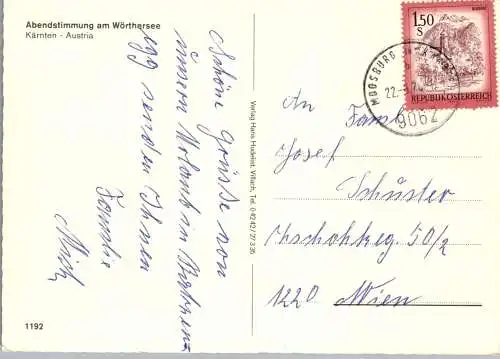 Abendstimmung am Wörthersee
Kärnten - Austria
Schöne Grüsse von
unsern Urlaub in
senden Ihnen
Familie
1192
Verlag Hans Huderlist, Villach, Tel. 0 42 42 / 27 3 36
1.50
S
REPUBLIK ÖSTERREICH
MOOSBURG
9062
An Fam.
Josef
Schuster
50/2
1220 Wien